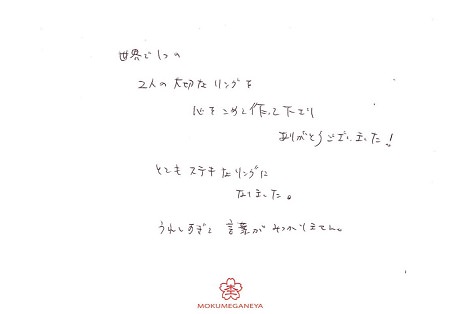 世界で1つの
2人の大切なリングを
心をこめて作って下さり
ありがとうございました!
とてもステキなリングに
なりました。
うれしすぎて言葉がみつかりません。
杢
MOKUMEGANEYA